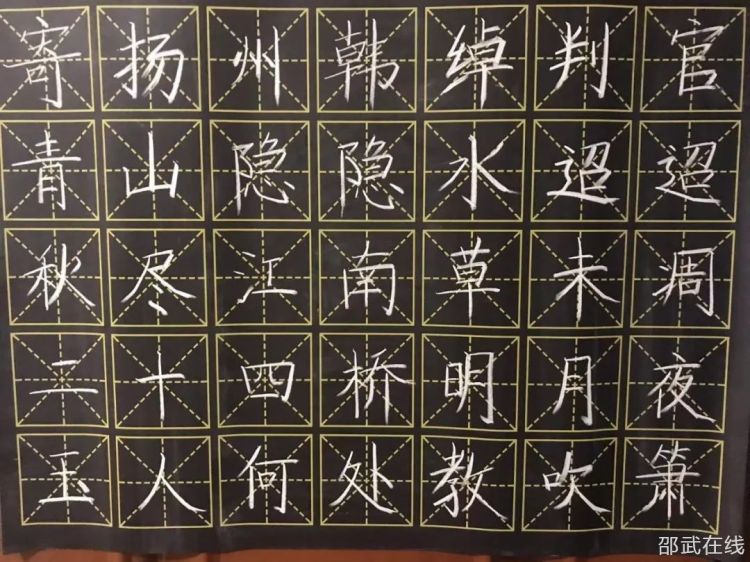 寄扬州韩绰判官
青山隐隐水迢迢
秋尽江南草未凋
二十四桥明月夜
玉人何处教吹箫
邵武在线